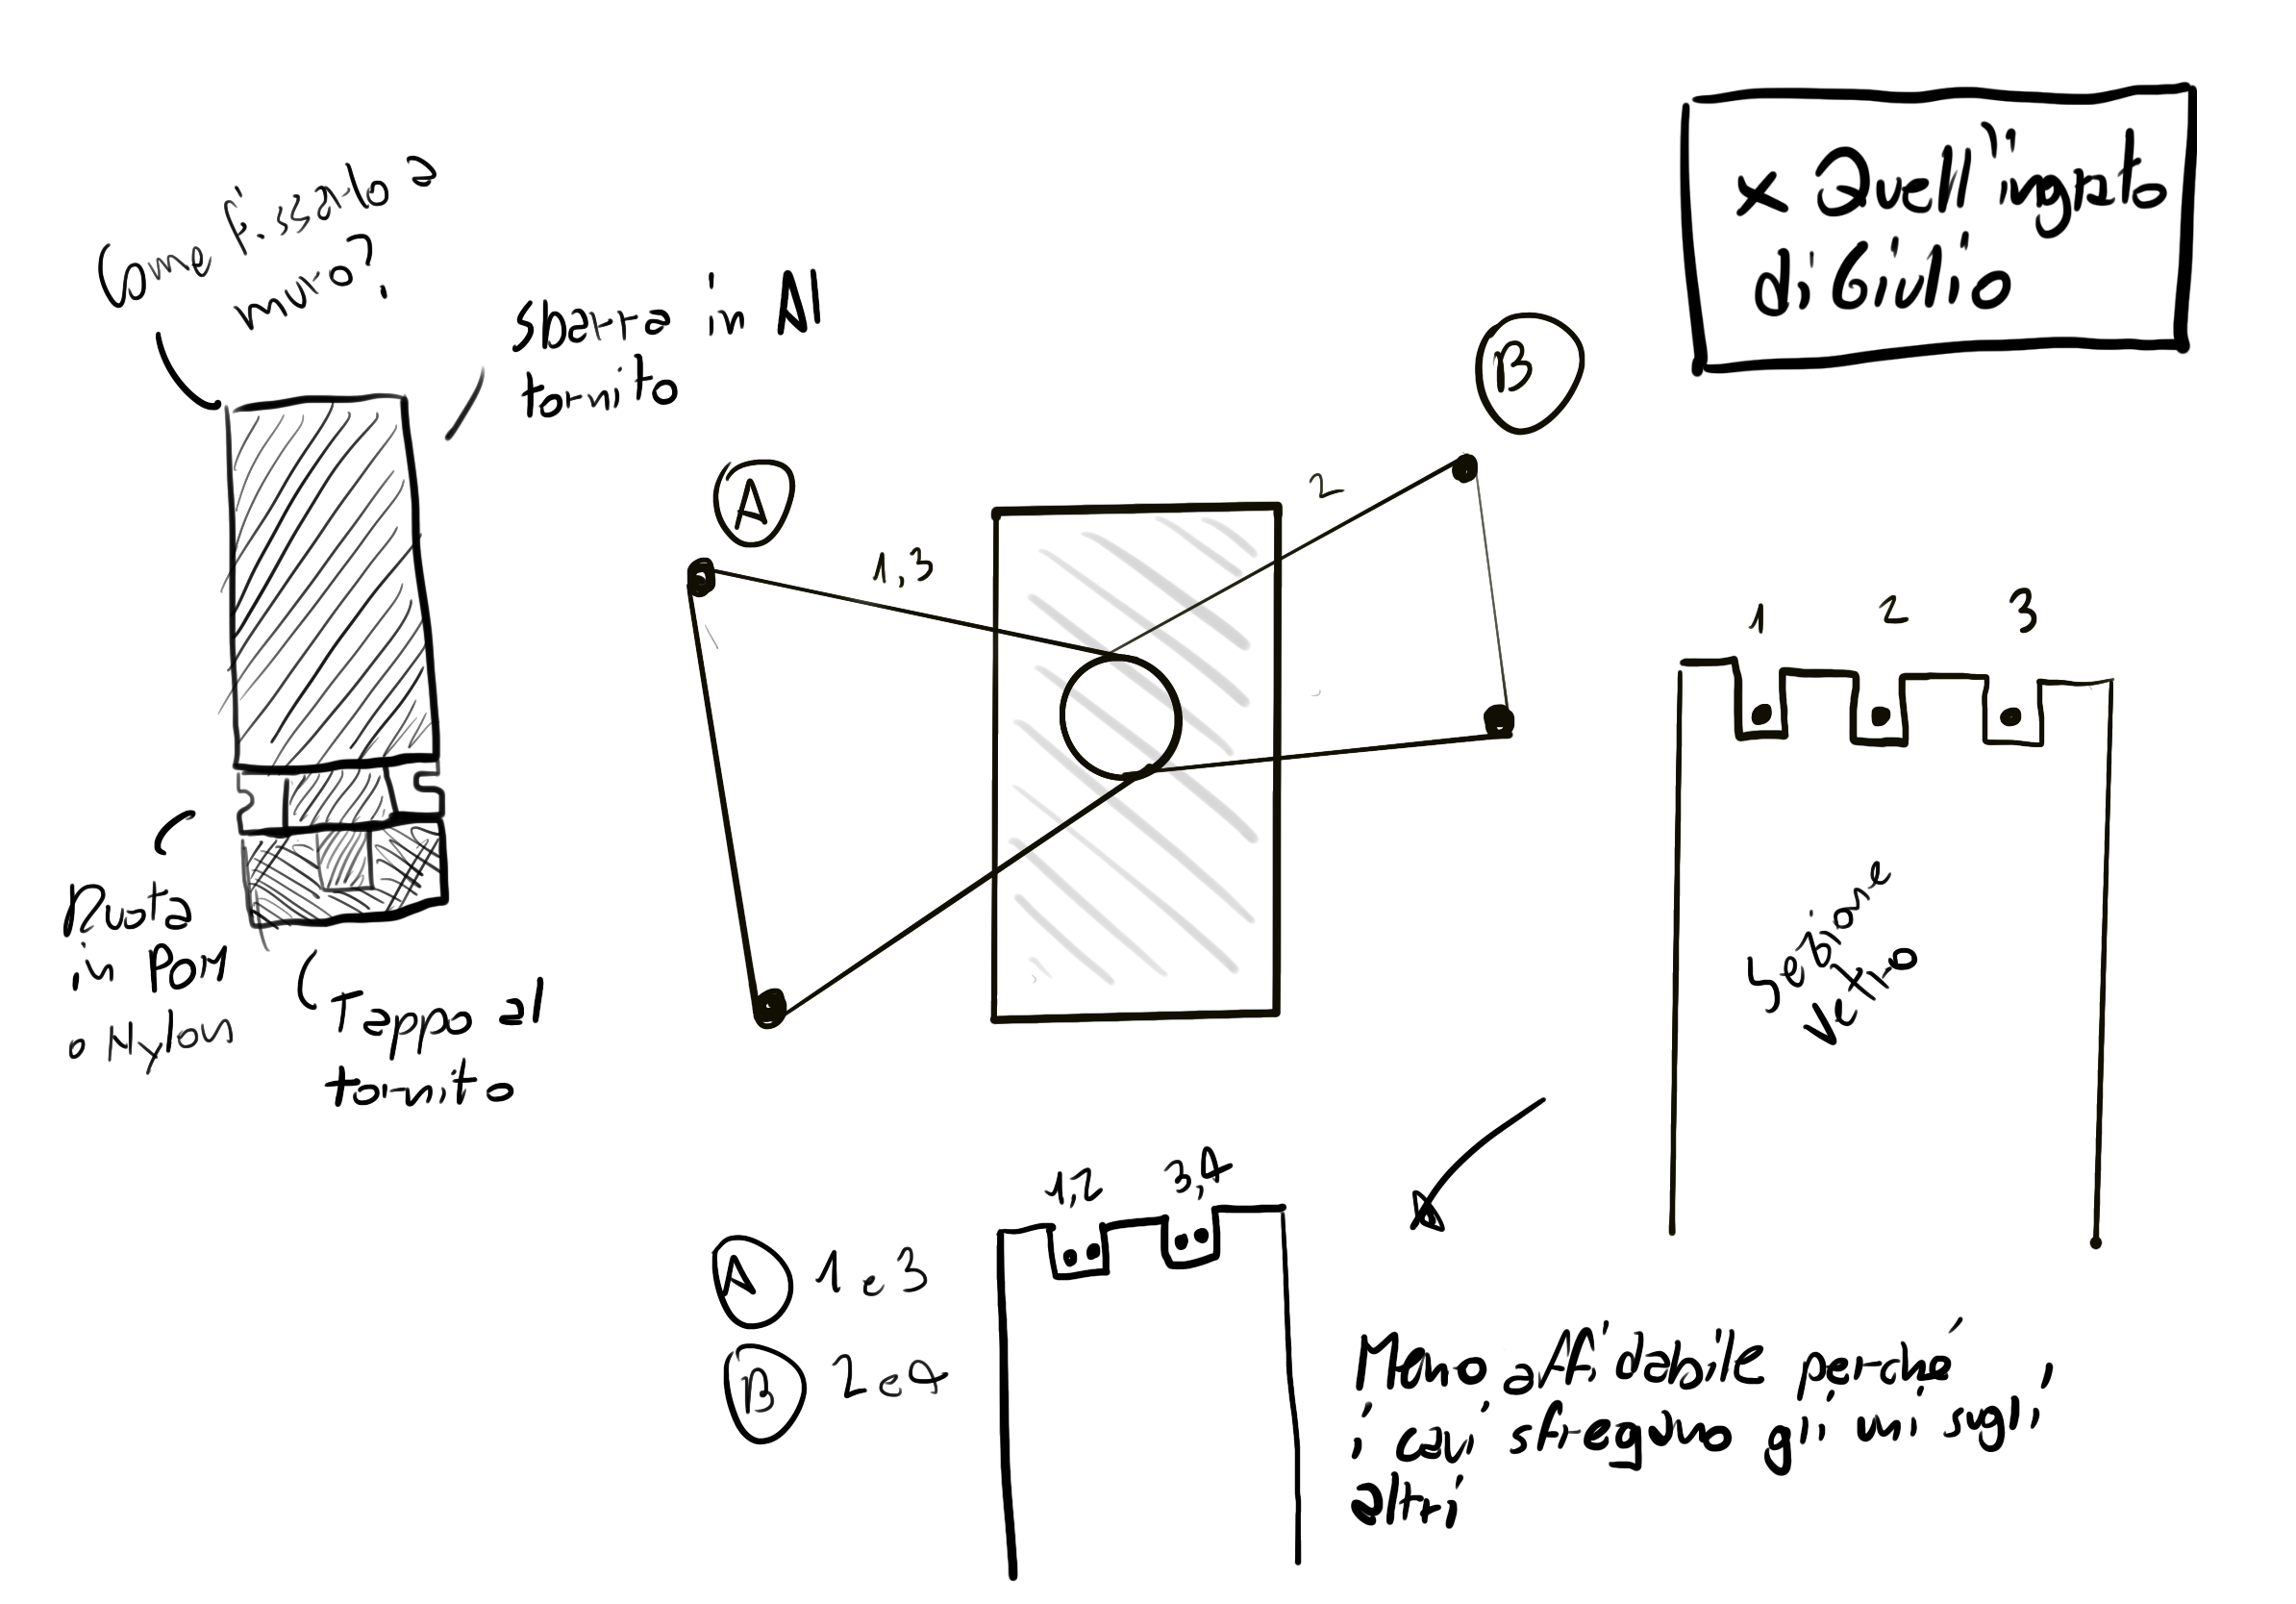 x Quell'ingrato
di Giulio
Come fissarlo a
muro?
Sbarra in Al
tornito
B
A
2
1,3
1 2 3
Ruota
in POM
o Nylon
Tappo al
tornito
Sezione
Vetro
1,2 3,4
A 1 e 3
B 2 e 4
Meno affidabile perché
i cavi sfregano gli uni sugli
altri